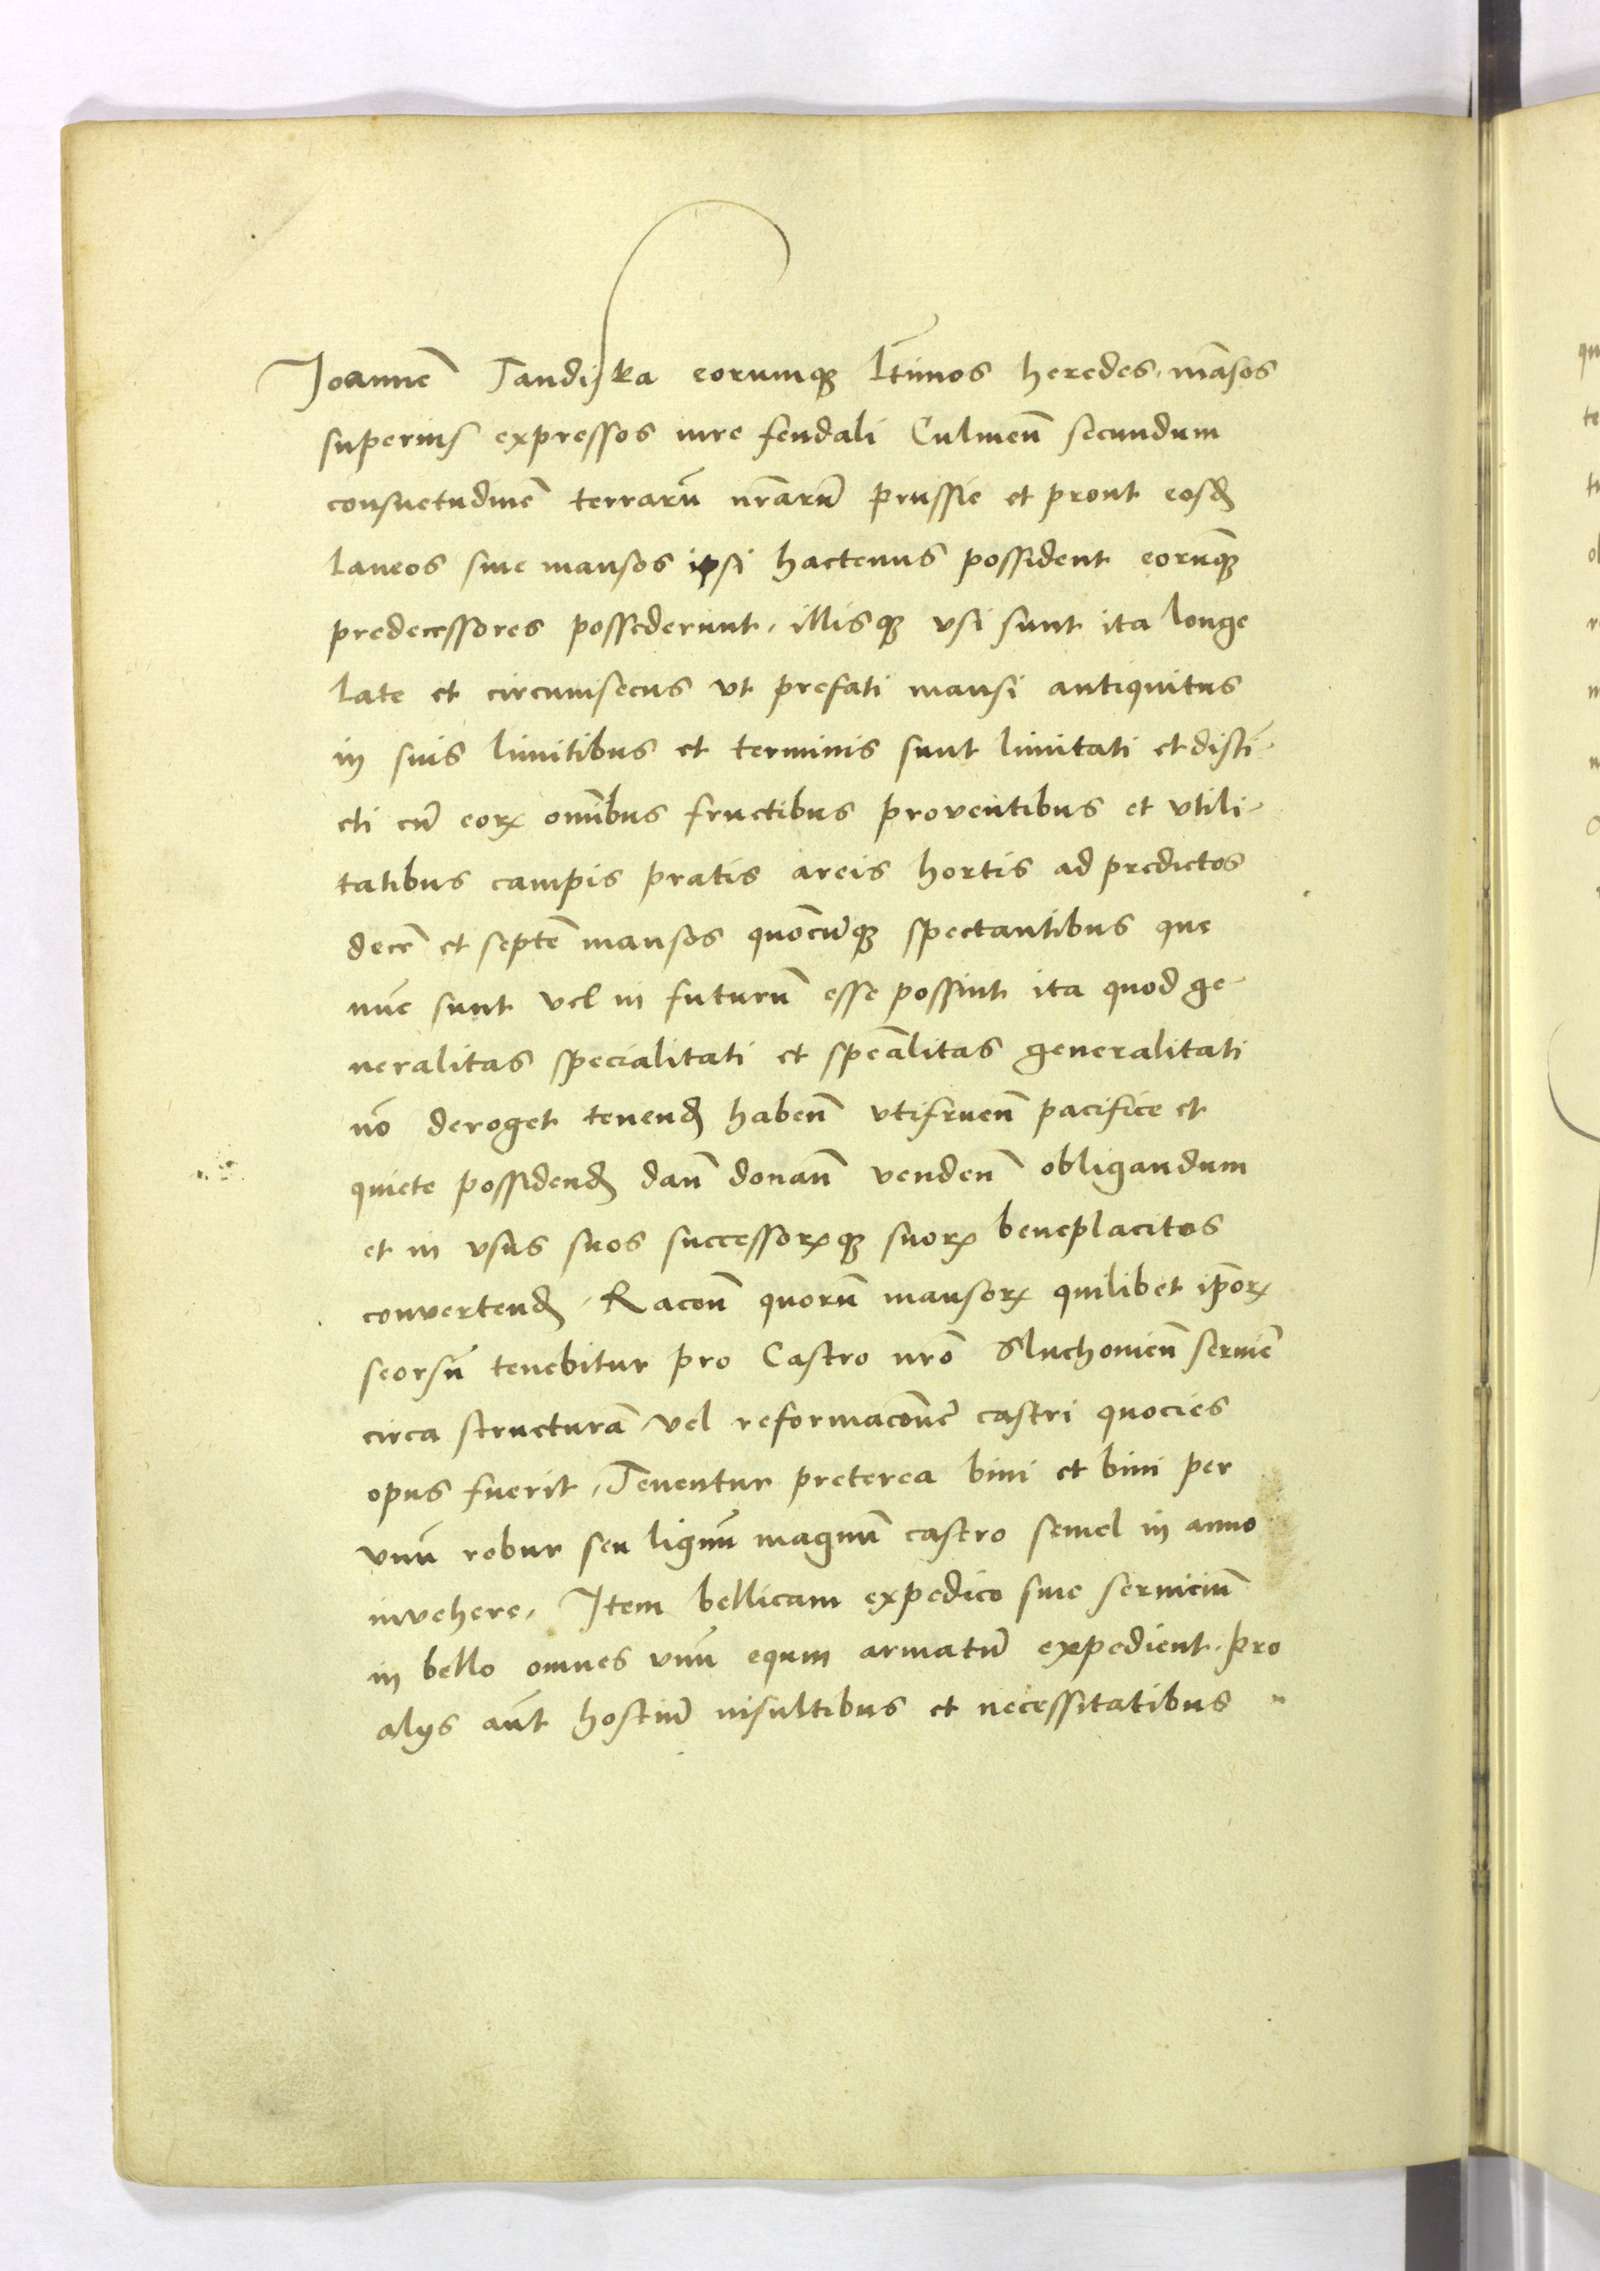 Joannē Tandiſka eorumqꝫ Ltimos heredes. māsos
superius expressos iure feudali Culmeñ secundum
consuetudinē terrarū nrārū prussie et prout eosđ
laneos siue mansos ipsi hactenus possident eorūqꝫ
predecessores possederunt. illisqꝫ vsi sunt ita longe
late et circumsecus vt prefati mansi antiquitus
in suis limitibus et terminis sunt limitati et distī-
cti cū eorꝝ om̄ibus fructibus prouentibus et vtili-
tatibus campis pratis areis hortis ad predictos
decē et septē mansos quōcūqꝫ spectantibus que
nūc sunt vel in futurū esse possint ita quod ge-
neralitas specialitati et speālitas generalitati
nō deroget tenenđ habeñ vtifrueñ pacifice et
quiete possidenđ dañ donañ vendeñ obligandum
et in vsus suos successorꝝqꝫ suorꝝ beneplacitos
convertenđ. Racoñ quorū mansorꝝ quilibet ip̄orꝝ
seorsū tenebitur pro Castro nrō Sluchouieñ seruiē
circa structurā vel reformacōnē castri quocies
opus fuerit. Tenentur preterea bini et bini per
vnū robur seu lignū magnū castro semel in anno
invehere. Item bellicam expedico siue seruiciū
in bello omnes vnū equm armatū expedient. pro
alijs aūt hostiū insultibus et necessitatibus